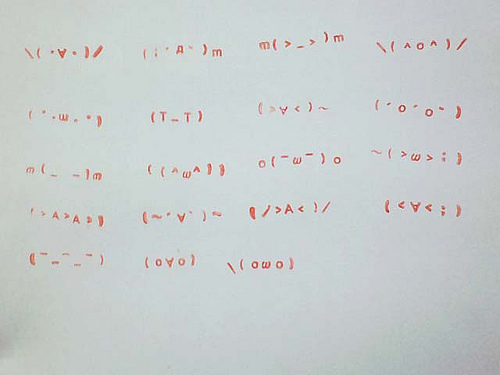 \(・∀・)/ (；・Д・)m m(>_>)m \(^o^)/
(´・ω・`) (T_T) (>∀<)~ (・o・o・)
m(_ _)m ((^ω^)) o(￣ω￣)o ~(>ω>;)
(>A>A>) (~・∀・)~ (/>A<)/ (<∀<;)
(￣_￣_￣) (o∀o) \(oωo)